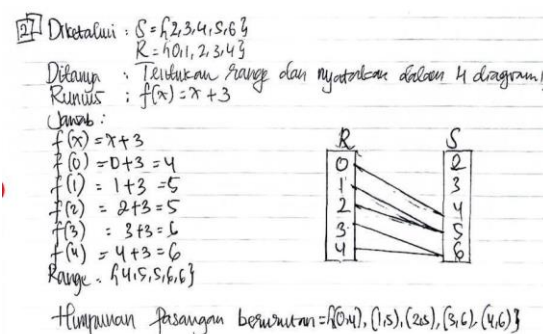 2] Diketahui : S = {2,3,4,5,6}
R = {0,1,2,3,4}
Ditanya : Tentukan range dan nyatakan dalam 4 diagram!
Rumus : f(x) = x + 3
Jawab :
f(x) = x+3
f(0) = 0+3 = 4
f(1) = 1+3 = 5
f(2) = 2+3 = 5
f(3) = 3+3 = 6
f(4) = 4+3 = 6
Range = {4,5,5,6,6}
R S
0 2
1 3
2 4
3 5
4 6
Himpunan pasangan berurutan = {(0,4), (1,5), (2,5), (3,6), (4,6)}